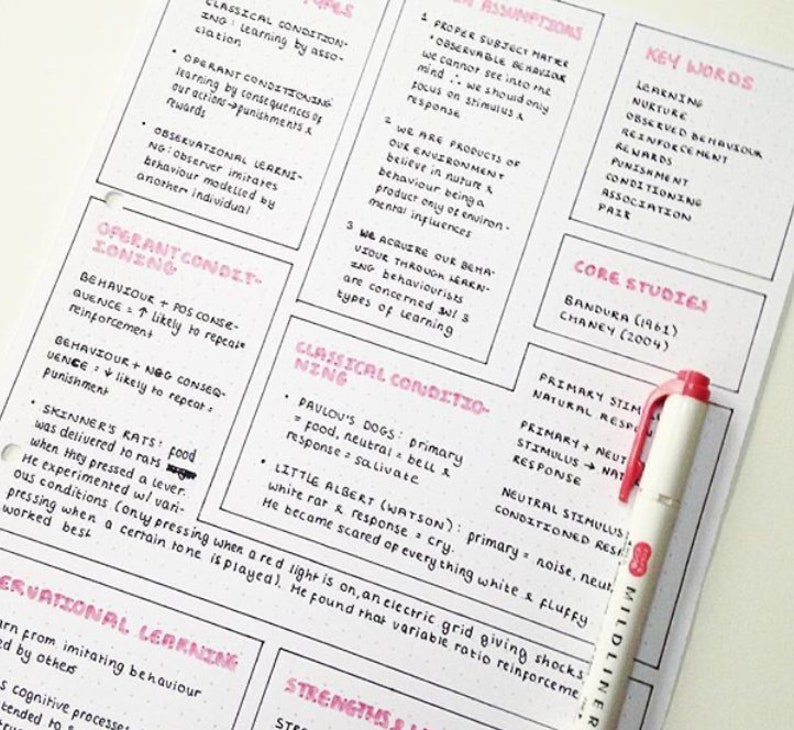 TYPES
CLASSICAL CONDITION-
ING: learning by asso-
ciation
• OPERANT CONDITIONING
learning by consequences of
our actions → punishments &
rewards
• OBSERVATIONAL LEARNI-
NG: observer imitates
behaviour modelled by
another individual
ASSUMPTIONS
1 PROPER SUBJECT MATTER
• OBSERVABLE BEHAVIOUR
we cannot see into the
mind ∴ we should only
focus on stimulus &
response
2 WE ARE PRODUCTS OF
OUR ENVIRONMENT
believe in nuture &
behaviour being a
product only of environ-
mental influences
3 WE ACQUIRE OUR BEHA-
VIOUR THROUGH LEARN-
ING behaviourists
are concerned w/ 3
types of learning
KEY WORDS
LEARNING
NURTURE
OBSERVED BEHAVIOUR
REINFORCEMENT
REWARDS
PUNISHMENT
CONDITIONING
ASSOCIATION
PAIR
CORE STUDIES
BANDURA (1961)
CHANEY (2004)
OPERANT CONDIT-
IONING
BEHAVIOUR + POS CONSE-
QUENCE = ↑ likely to repeat =
reinforcement
BEHAVIOUR + NEG CONSEQ-
UENCE = ↓ likely to repeat =
punishment
• SKINNER'S RATS: food
was delivered to rats
when they pressed a lever.
He experimented w/ vari-
ous conditions (only pressing when a red light is on, an electric grid giving shocks
pressing when a certain tone is played). He found that variable ratio reinforceme
worked best
CLASSICAL CONDITIO-
NING
• PAVLOV'S DOGS: primary
= food, neutral = bell &
response = salivate
• LITTLE ALBERT (WATSON): primary = noise, neut
white rat & response = cry.
He became scared of everything white & fluffy
PRIMARY STIM
NATURAL RESPON
PRIMARY + NEUT
STIMULUS → NAT
RESPONSE
NEUTRAL STIMULUS
CONDITIONED RES
ERVATIONAL LEARNING
arn from imitating behaviour
ed by others
s cognitive processe
tended to
STRENGTHS &
STRE
MILDLINER